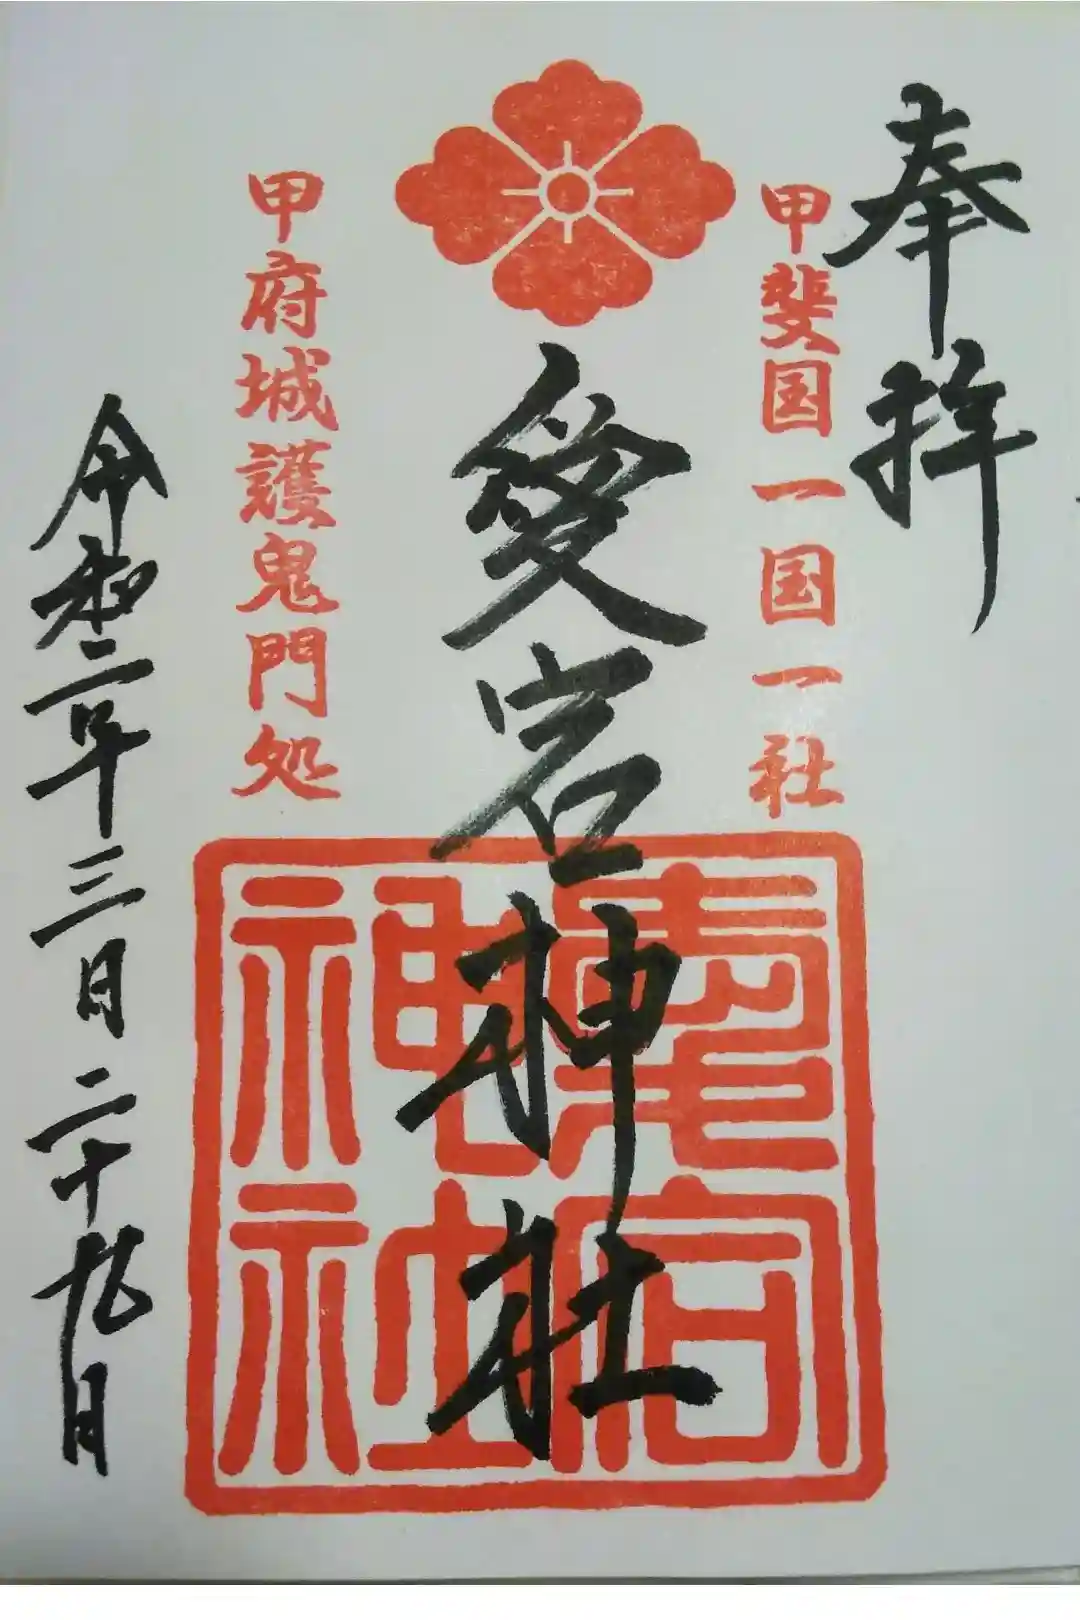 奉拝
甲斐国一国一社
愛宕神社
愛宕神社
甲府城護鬼門処
令和二年三月二十九日